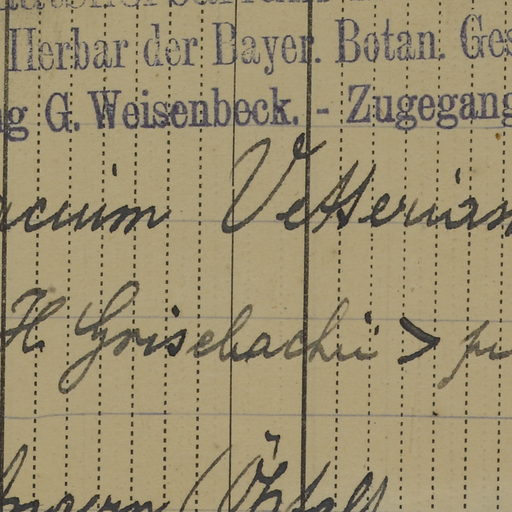 Herbar der Bayer. Botan. Ges
g G. Weisenbeck. - Zugegang
acium Vetterian
H Grisebachii > pi